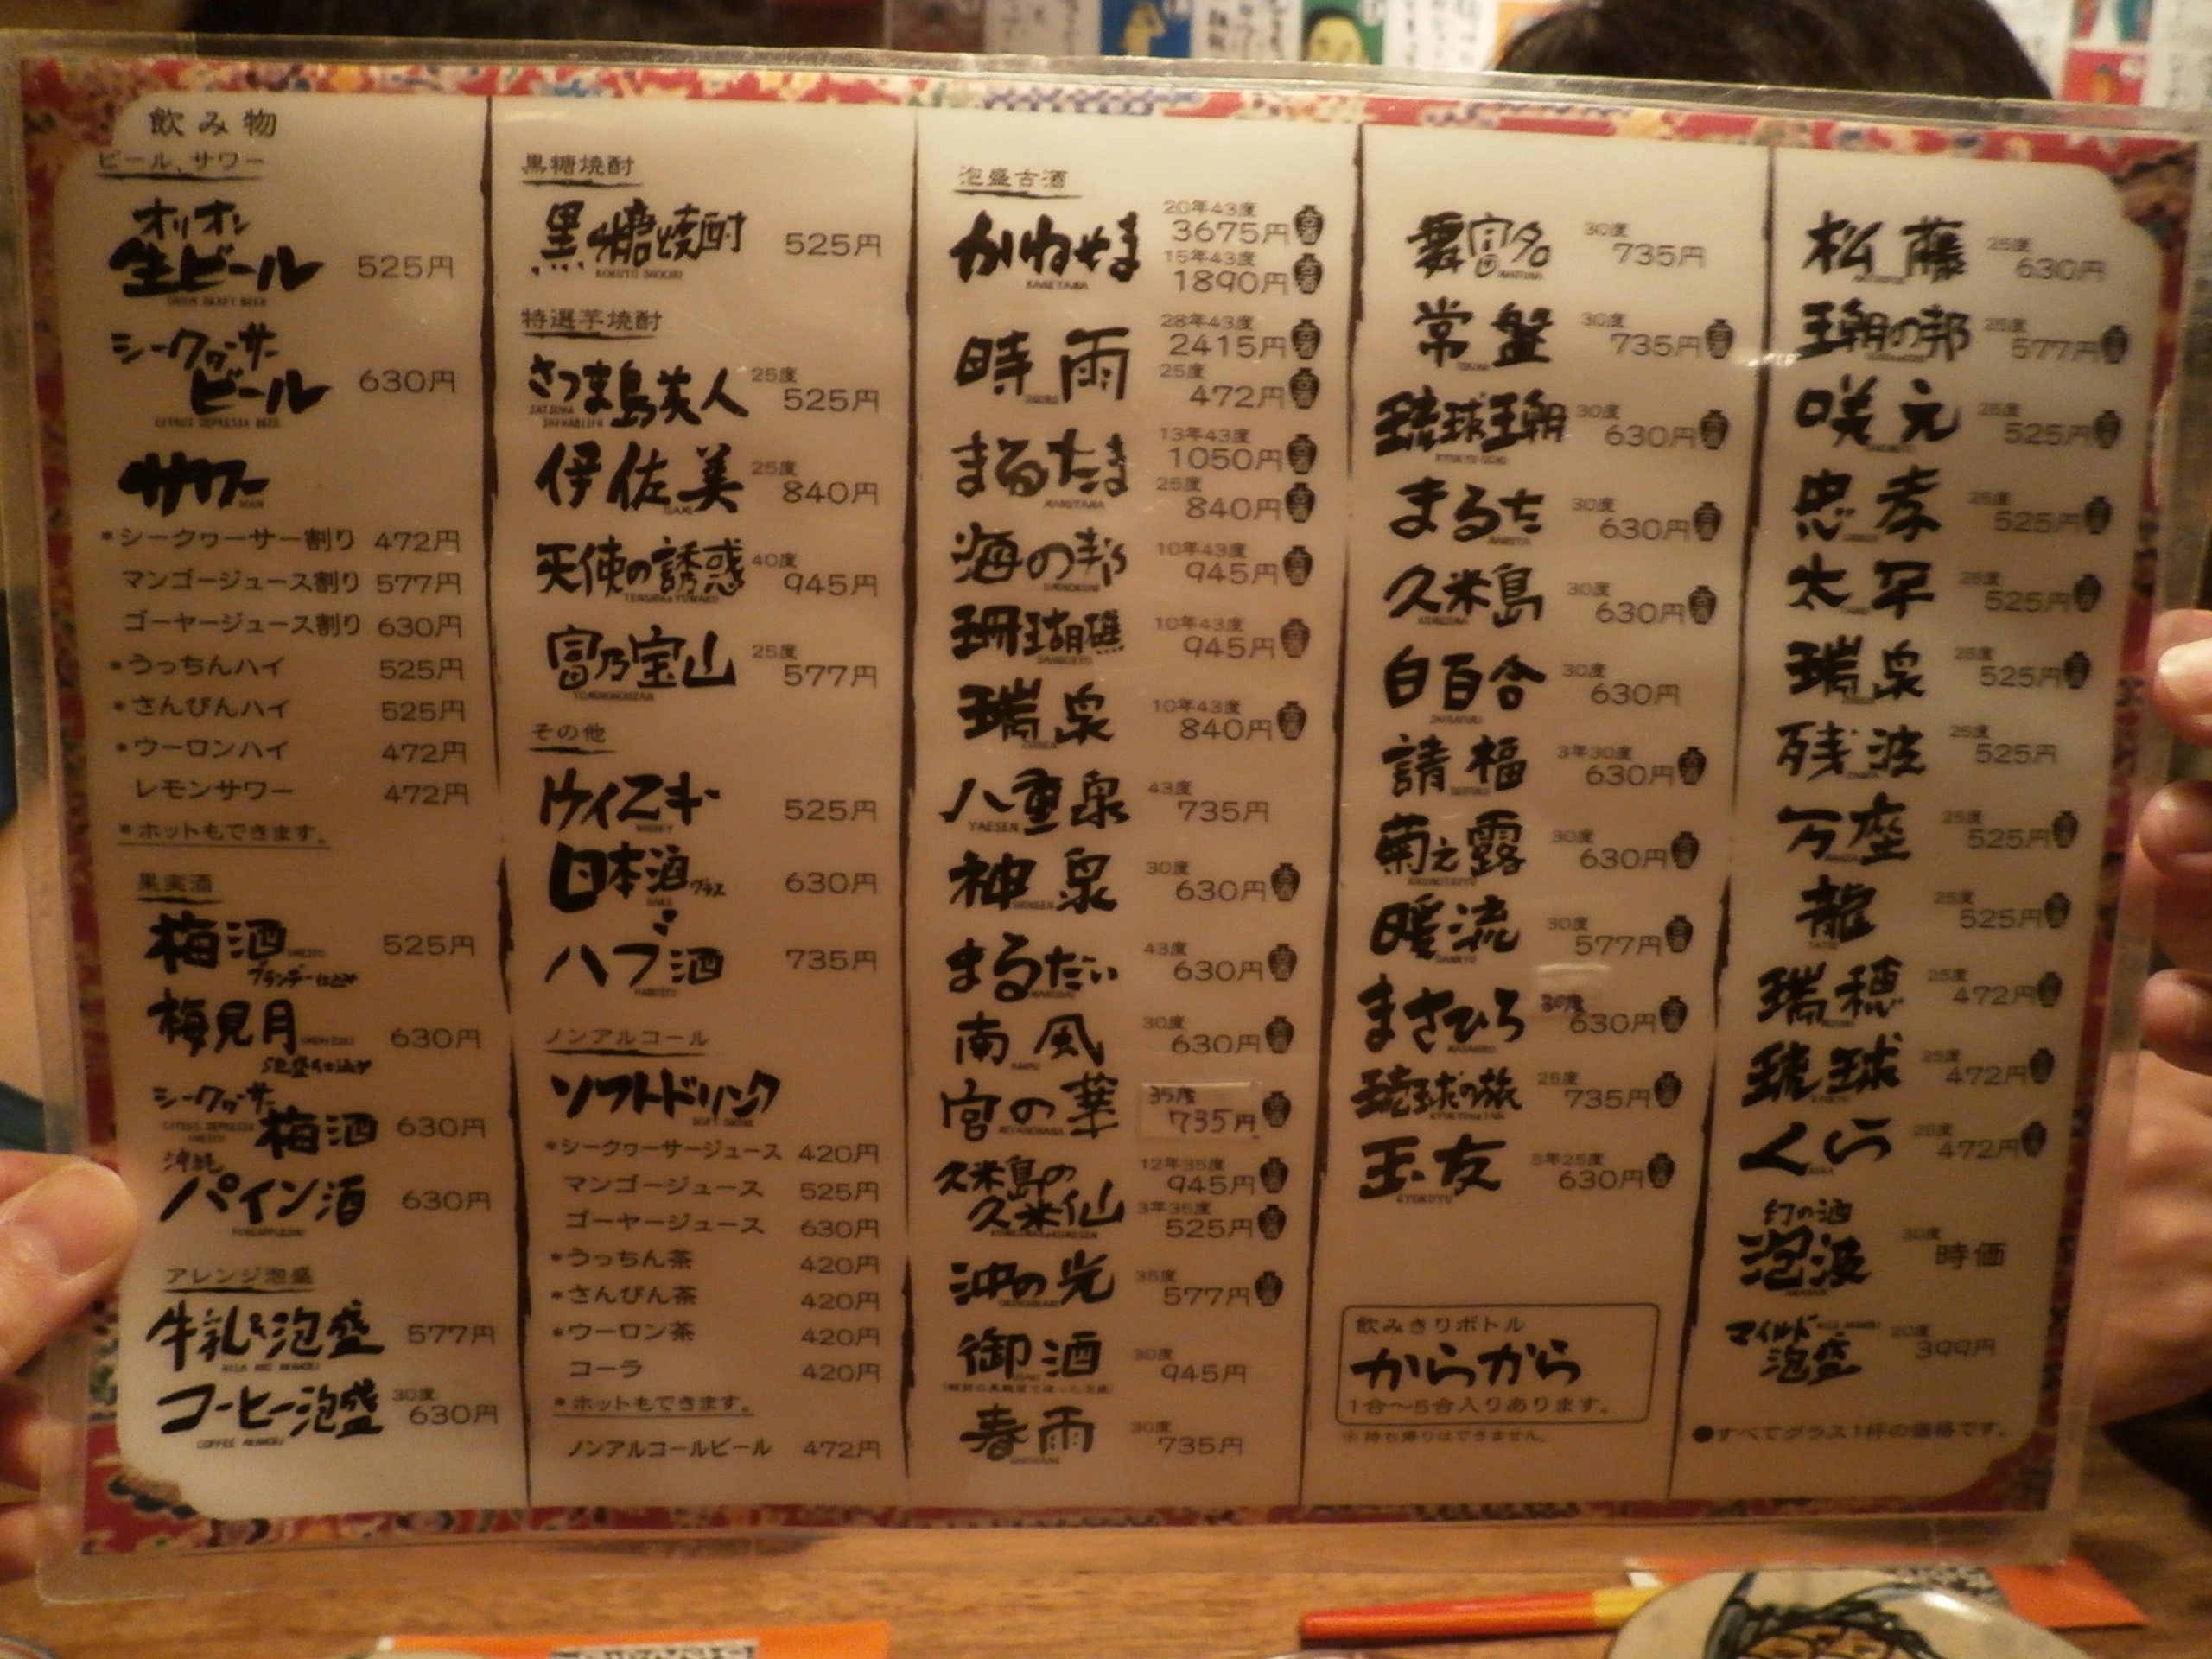 飲み物
ビール、サワー
オリオン
生ビール 525円
ORION DRAFT BEER
シークヮーサー
ビール 630円
CITRUS DEPRESSA BEER
サワー
*シークヮーサー割り 472円
マンゴージュース割り 577円
ゴーヤージュース割り 630円
*うっちんハイ 525円
*さんぴんハイ 525円
*ウーロンハイ 472円
レモンサワー 472円
*ホットもできます。
果実酒
梅酒 525円
ブランデー仕込み
梅見月 630円
泡盛仕込み
シークヮーサー
梅酒 630円
沖縄
パイン酒 630円
アレンジ泡盛
牛乳&泡盛 577円
コーヒー泡盛 30度 630円
COFFEE AWAMORI
黒糖焼酎
黒糖焼酎 525円
KOKUTO SHOCHU
特選芋焼酎
さつま島美人 25度 525円
伊佐美 25度 840円
天使の誘惑 40度 945円
富乃宝山 25度 577円
TOMINOHOUZAN
その他
ウイスキー 525円
日本酒 グラス 630円
ハブ酒 735円
ノンアルコール
ソフトドリンク
SOFT DRINK
*シークヮーサージュース 420円
マンゴージュース 525円
ゴーヤージュース 630円
*うっちん茶 420円
*さんぴん茶 420円
*ウーロン茶 420円
コーラ 420円
*ホットもできます。
ノンアルコールビール 472円
泡盛古酒
かねやま 20年43度 3675円 古酒
KANEYAMA 15年43度 1890円 古酒
時雨 28年43度 2415円 古酒
25度 472円 古酒
まるたま 13年43度 1050円 古酒
MARUTAMA 25度 840円 古酒
海の邦 10年43度 945円 古酒
珊瑚礁 10年43度 945円 古酒
瑞泉 10年43度 840円 古酒
八重泉 43度 735円
YAESEN
神泉 30度 630円 古酒
まるだい 43度 630円 古酒
南風 30度 630円 古酒
宮の華 35度 735円 古酒
久米島の 12年35度 945円 古酒
久米仙 3年35度 525円 古酒
沖の光 35度 577円 古酒
御酒 30度 945円
春雨 30度 735円
舞富名 30度 735円
常盤 30度 735円 古酒
琉球王朝 30度 630円 古酒
まるた 30度 630円 古酒
久米島 30度 630円 古酒
白百合 30度 630円
請福 3年30度 630円 古酒
菊之露 30度 630円 古酒
暖流 30度 577円 古酒
まさひろ 30度 630円 古酒
琉球の旅 25度 735円 古酒
玉友 5年25度 630円 古酒
GYOKUYU
飲みきりボトル
からから
1合~5合入りあります。
※持ち帰りはできません。
松藤 25度 630円
王朝の邦 25度 577円 古酒
咲元 25度 525円 古酒
忠孝 25度 525円 古酒
太平 25度 525円 古酒
瑞泉 25度 525円 古酒
残波 25度 525円
万座 25度 525円 古酒
龍 25度 525円 古酒
瑞穂 25度 472円 古酒
琉球 25度 472円 古酒
くら 25度 472円 古酒
幻の酒
泡波 30度 時価
マイルド
泡盛 20度 399円
●すべてグラス1杯の価格です。